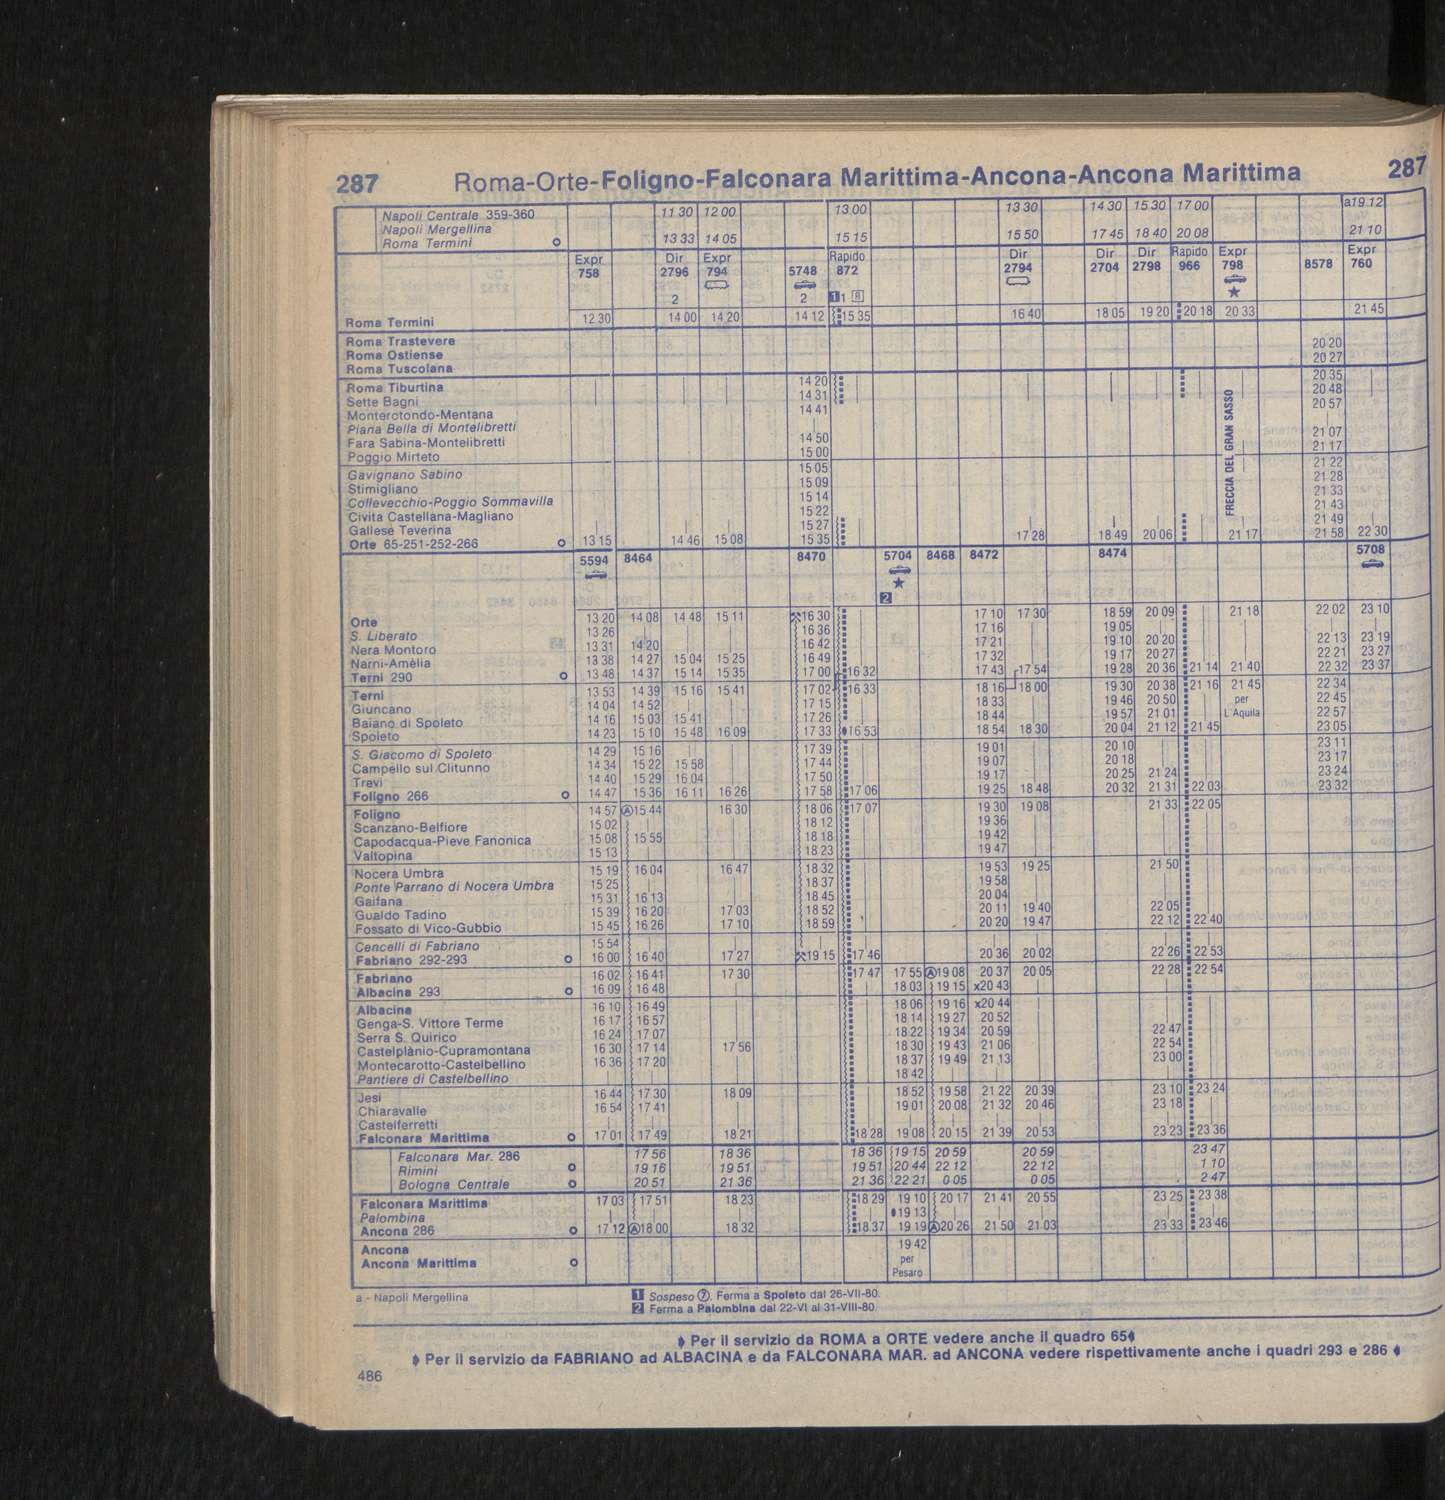 287 Roma-Orte-Foligno-Falconara Marittima-Ancona-Ancona Marittima 287
Napoli Centrale 359-360 11 30 12 00 13 00 13 30 14 30 15 30 17 00 a19.12
Napoli Mergellina
Roma Termini 13 33 14 05 15 15 15 50 17 45 18 40 20 08 21 10
Expr Dir Expr Rapido Dir Dir Dir Rapido Expr Expr
758 2796 794 5748 872 2794 2704 2798 966 798 8578 760
2 2 1 1 R ★
Roma Termini 12 30 14 00 14 20 14 12 15 35 16 40 18 05 19 20 20 18 20 33 21 45
Roma Trastevere 20 20
Roma Ostiense 20 27
Roma Tuscolana
Roma Tiburtina 14 20 20 35
Sette Bagni 14 31 20 48
Monterotondo-Mentana 14 41 20 57
Piana Bella di Montelibretti
Fara Sabina-Montelibretti 14 50 21 07
Poggio Mirteto 15 00 21 17
Gavignano Sabino 15 05 21 22
Stimigliano 15 09 21 28
Collevecchio-Poggio Sommavilla 15 14 21 33
Civita Castellana-Magliano 15 22 21 43
Gallese Teverina 15 27 21 49
Orte 65-251-252-266 13 15 14 46 15 08 15 35 17 28 18 49 20 06 21 17 21 58 22 30
FRECCIA DEL GRAN SASSO
5594 8464 8470 5704 8468 8472 8474 5708
★
2
Orte 13 20 14 08 14 48 15 11 16 30 17 10 17 30 18 59 20 09 21 18 22 02 23 10
S. Liberato 13 26 16 36 17 16 19 05
Nera Montoro 13 31 14 20 16 42 17 21 19 10 20 20 22 13 23 19
Narni-Amèlia 13 38 14 27 15 04 15 25 16 49 17 32 19 17 20 27 22 21 23 27
Terni 290 13 48 14 37 15 14 15 35 17 00 16 32 17 43 17 54 19 28 20 36 21 14 21 40 22 32 23 37
Terni 13 53 14 39 15 16 15 41 17 02 16 33 18 16 18 00 19 30 20 38 21 16 21 45 22 34
Giuncano 14 04 14 52 17 15 18 33 19 46 20 50 per 22 45
Baiano di Spoleto 14 16 15 03 15 41 17 26 18 44 19 57 21 01 L'Aquila 22 57
Spoleto 14 23 15 10 15 48 16 09 17 33 16 53 18 54 18 30 20 04 21 12 21 45 23 05
S. Giacomo di Spoleto 14 29 15 16 17 39 19 01 20 10 23 11
Campello sul Clitunno 14 34 15 22 15 58 17 44 19 07 20 18 23 17
Trevi 14 40 15 29 16 04 17 50 19 17 20 25 21 24 23 24
Foligno 266 14 47 15 36 16 11 16 26 17 58 17 06 19 25 18 48 20 32 21 31 22 03 23 32
Foligno 14 57 Ⓐ15 44 16 30 18 06 17 07 19 30 19 08 21 33 22 05
Scanzano-Belfiore 15 02 18 12 19 36
Capodacqua-Pieve Fanonica 15 08 15 55 18 18 19 42
Valtopina 15 13 18 23 19 47
Nocera Umbra 15 19 16 04 16 47 18 32 19 53 19 25 21 50
Ponte Parrano di Nocera Umbra 15 25 18 37 19 58
Gaifana 15 31 16 13 18 45 20 04
Gualdo Tadino 15 39 16 20 17 03 18 52 20 11 19 40 22 05
Fossato di Vico-Gubbio 15 45 16 26 17 10 18 59 20 20 19 47 22 12 22 40
Cencelli di Fabriano 15 54
Fabriano 292-293 16 00 16 40 17 27 19 15 17 46 20 36 20 02 22 26 22 53
Fabriano 16 02 16 41 17 30 17 47 17 55 Ⓐ19 08 20 37 20 05 22 28 22 54
Albacina 293 16 09 16 48 18 03 19 15 x20 43
Albacina 16 10 16 49 18 06 19 16 x20 44
Genga-S. Vittore Terme 16 17 16 57 18 14 19 27 20 52
Serra S. Quirico 16 24 17 07 18 22 19 34 20 59 22 47
Castelplànio-Cupramontana 16 30 17 14 17 56 18 30 19 43 21 06 22 54
Montecarotto-Castelbellino 16 36 17 20 18 37 19 49 21 13 23 00
Pantiere di Castelbellino 18 42
Jesi 16 44 17 30 18 09 18 52 19 58 21 22 20 39 23 10 23 24
Chiaravalle 16 54 17 41 19 01 20 08 21 32 20 46 23 18
Castelferretti
Falconara Marittima 17 01 17 49 18 21 18 28 19 08 20 15 21 39 20 53 23 23 23 36
Falconara Mar. 286 17 56 18 36 18 36 19 15 20 59 20 59 23 47
Rimini 19 16 19 51 19 51 20 44 22 12 22 12 1 10
Bologna Centrale 20 51 21 36 21 36 22 21 0 05 0 05 2 47
Falconara Marittima 17 03 17 51 18 23 18 29 19 10 20 17 21 41 20 55 23 25 23 38
Palombina 19 13
Ancona 286 17 12 Ⓐ18 00 18 32 18 37 19 19 Ⓐ20 26 21 50 21 03 23 33 23 46
Ancona 19 42
Ancona Marittima per
Pesaro
a - Napoli Mergellina
1 Sospeso ⑦. Ferma a Spoleto dal 26-VII-80.
2 Ferma a Palombina dal 22-VI al 31-VIII-80.
Per il servizio da ROMA a ORTE vedere anche il quadro 65
Per il servizio da FABRIANO ad ALBACINA e da FALCONARA MAR. ad ANCONA vedere rispettivamente anche i quadri 293 e 286
486